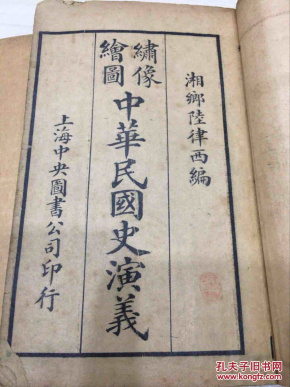 湘鄉陸律西編
繡像
繪圖
中華民國史演義
上海中央圖書公司印行
孔夫子旧书网